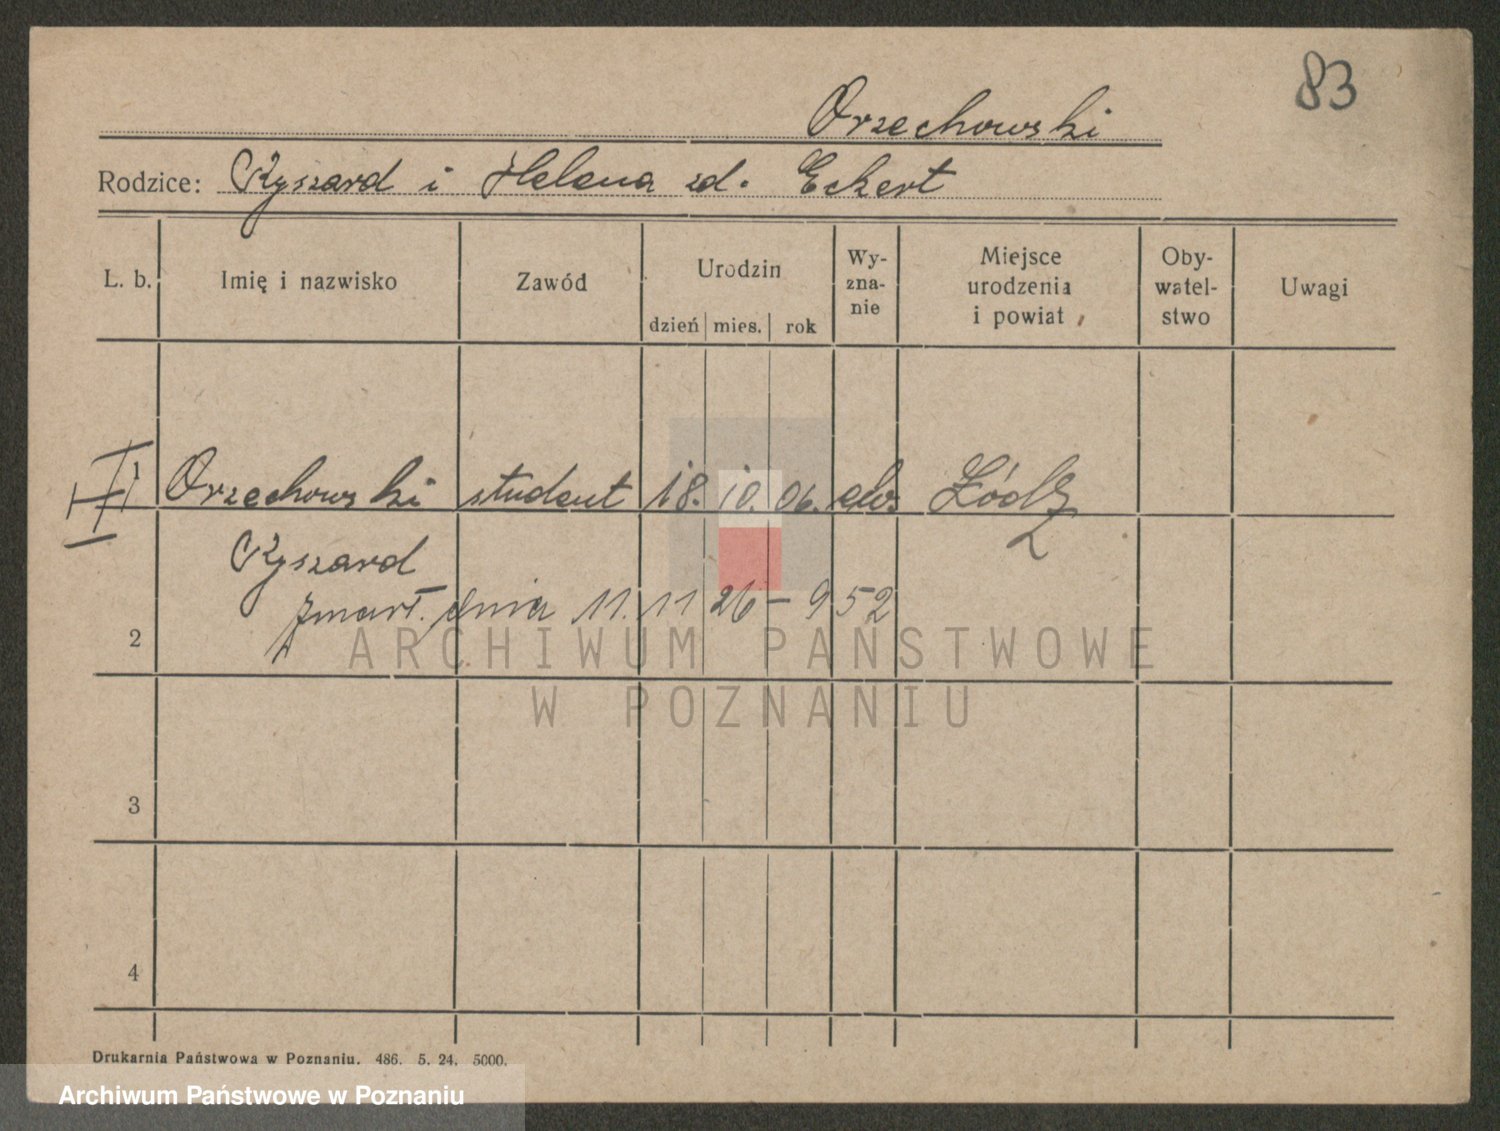 83
Orzechowski
Rodzice: Ryszard i Helena zd. Eckert
L. b. Imię i nazwisko Zawód Urodzin dzień mies. rok Wy-zna-nie Miejsce urodzenia i powiat Oby-watel-stwo Uwagi
1 Orzechowski student 18. 10. 06. Łódź
Ryszard
2 zmarł. dnia 11. 11 26 – 952
ARCHIWUM PAŃSTWOWE
W POZNANIU
3
4
Drukarnia Państwowa w Poznaniu. 486. 5. 24. 5000.
Archiwum Państwowe w Poznaniu